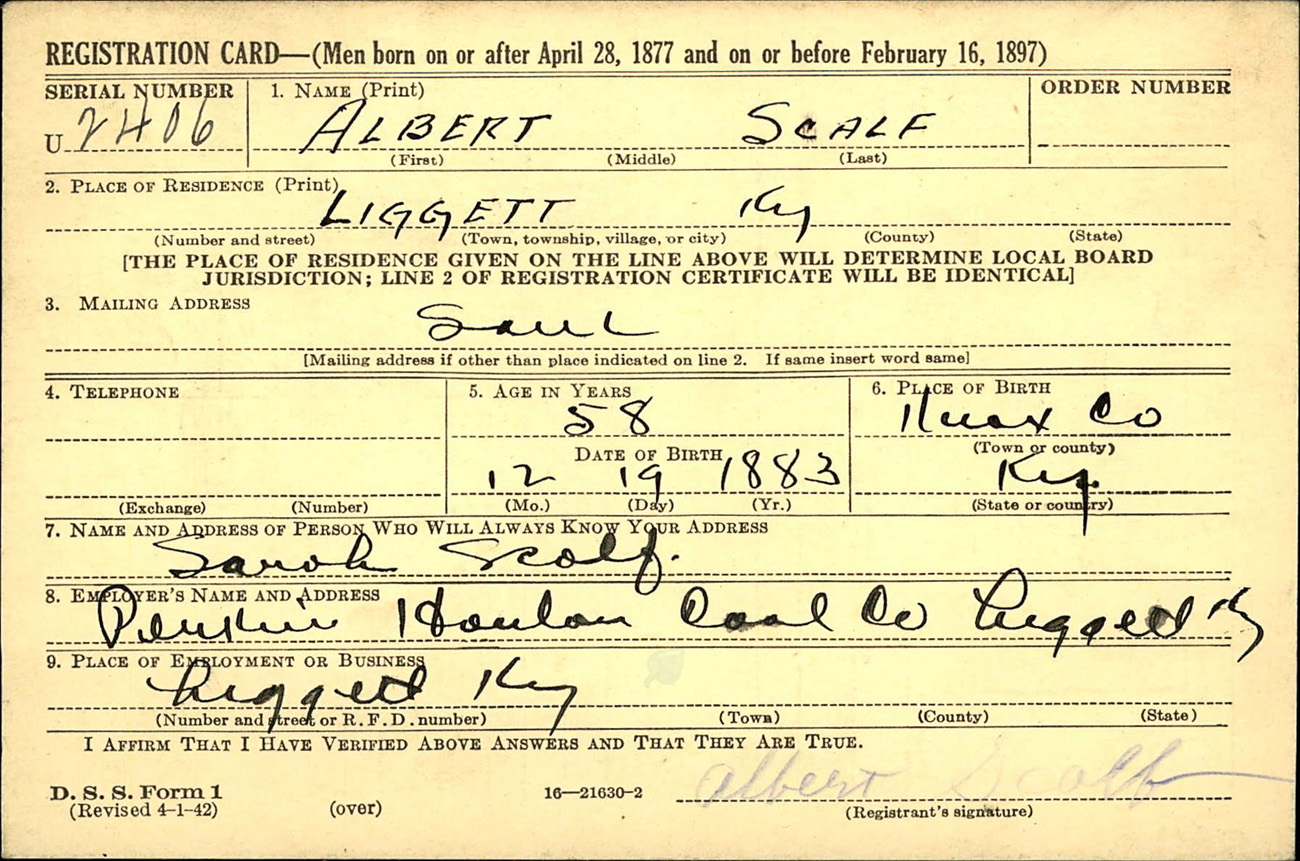 REGISTRATION CARD—(Men born on or after April 28, 1877 and on or before February 16, 1897)
SERIAL NUMBER 1. NAME (Print) ORDER NUMBER
U 2406 ALBERT SCALF
(First) (Middle) (Last)
2. PLACE OF RESIDENCE (Print)
LIGGETT Ky
(Number and street) (Town, township, village, or city) (County) (State)
[THE PLACE OF RESIDENCE GIVEN ON THE LINE ABOVE WILL DETERMINE LOCAL BOARD
JURISDICTION; LINE 2 OF REGISTRATION CERTIFICATE WILL BE IDENTICAL]
3. MAILING ADDRESS
Same
[Mailing address if other than place indicated on line 2. If same insert word same]
4. TELEPHONE 5. AGE IN YEARS 6. PLACE OF BIRTH
58 Knox Co
DATE OF BIRTH (Town or county)
12 19 1883 Ky.
(Exchange) (Number) (Mo.) (Day) (Yr.) (State or country)
7. NAME AND ADDRESS OF PERSON WHO WILL ALWAYS KNOW YOUR ADDRESS
Sarah Scalf.
8. EMPLOYER'S NAME AND ADDRESS
Coal Co Liggett Ky
9. PLACE OF EMPLOYMENT OR BUSINESS
Liggett Ky
(Number and street or R.F.D. number) (Town) (County) (State)
I AFFIRM THAT I HAVE VERIFIED ABOVE ANSWERS AND THAT THEY ARE TRUE.
Albert Scalf
D. S. S. Form 1 16—21630-2
(Revised 4-1-42) (over) (Registrant's signature)